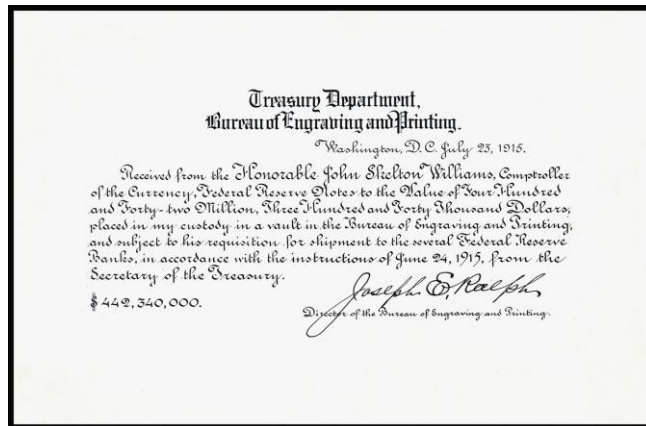 Treasury Department,
Bureau of Engraving and Printing.
Washington, D.C. July 23, 1915.
Received from the Honorable John Skelton Williams, Comptroller
of the Currency, Federal Reserve Notes to the Value of Four Hundred
and Forty-two Million, Three Hundred and Forty Thousand Dollars,
placed in my custody in a vault in the Bureau of Engraving and Printing,
and subject to his requisition for shipment to the several Federal Reserve
Banks, in accordance with the instructions of June 24, 1915, from the
Secretary of the Treasury.
$442,340,000.
Joseph E. Ralph
Director of the Bureau of Engraving and Printing.